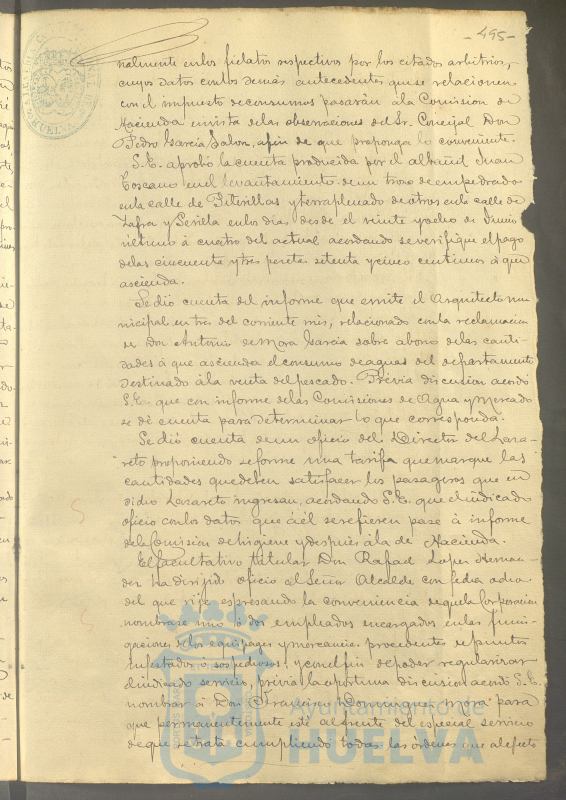 -495-
nalmente en los fielatos respectivos por los citados arbitrios,
cuyos datos con los demás antecedentes que se relacionen
con el impuesto de consumos pasarán á la Comision de
Hacienda en vista de las observaciones del Sr. Concejal Don
Pedro Garcia Jalon, á fin de que proponga lo conveniente.
S.E. aprobó la cuenta producida por el albañil Juan
Toscano en el levantamiento de un trozo de empedrado
en la calle de Pitirillas y terraplenado de otros en la calle de
Zafra y Sevilla en los dias desde el veinte y ocho de Junio
último á cuatro del actual acordando se verifique el pago
de las cincuenta y tres pesetas setenta y cinco centimos á que
asciende.
Se dió cuenta del informe que emite el Arquitecto mu-
nicipal en tres del corriente mes, relacionado con la reclamacion
de Don Antonio de Mora Garcia sobre abono de las canti-
dades á que asciende el consumo de aguas del departamento
destinado á la venta del pescado. Prévia discusion acordó
S.E. que con informe de las Comisiones de Agua y Mercado
se dé cuenta para determinar lo que corresponda.
Se dió cuenta de un oficio del Director del Laza-
reto proponiendo se forme una tarifa que marque las
cantidades que deben satisfacer los pasageros que en
dicho Lazareto ingresan, acordando S.E. que el indicado
oficio con los datos que á él se refieren pase á informe
de la Comision de higiene y despues á la de Hacienda.
El facultativo titular Don Rafael Lopez Hernan-
dez ha dirijido oficio al Señor Alcalde con fecha
del que rije espresando la conveniencia de que la Corporacion
nombrase uno ó dos empleados encargados en las fumi-
gaciones de los equipages y mercancias procedentes de puntos
infestados ó sospechosos y con el fin de poder regularizar
el indicado servicio, prévia la oportuna discusion acordó S.E.
nombrar á Don Francisco Dominguez para
que permanentemente esté al frente del especial servicio
de que se trata cumpliendo todas las órdenes que al efecto
Ayuntamiento de
HUELVA